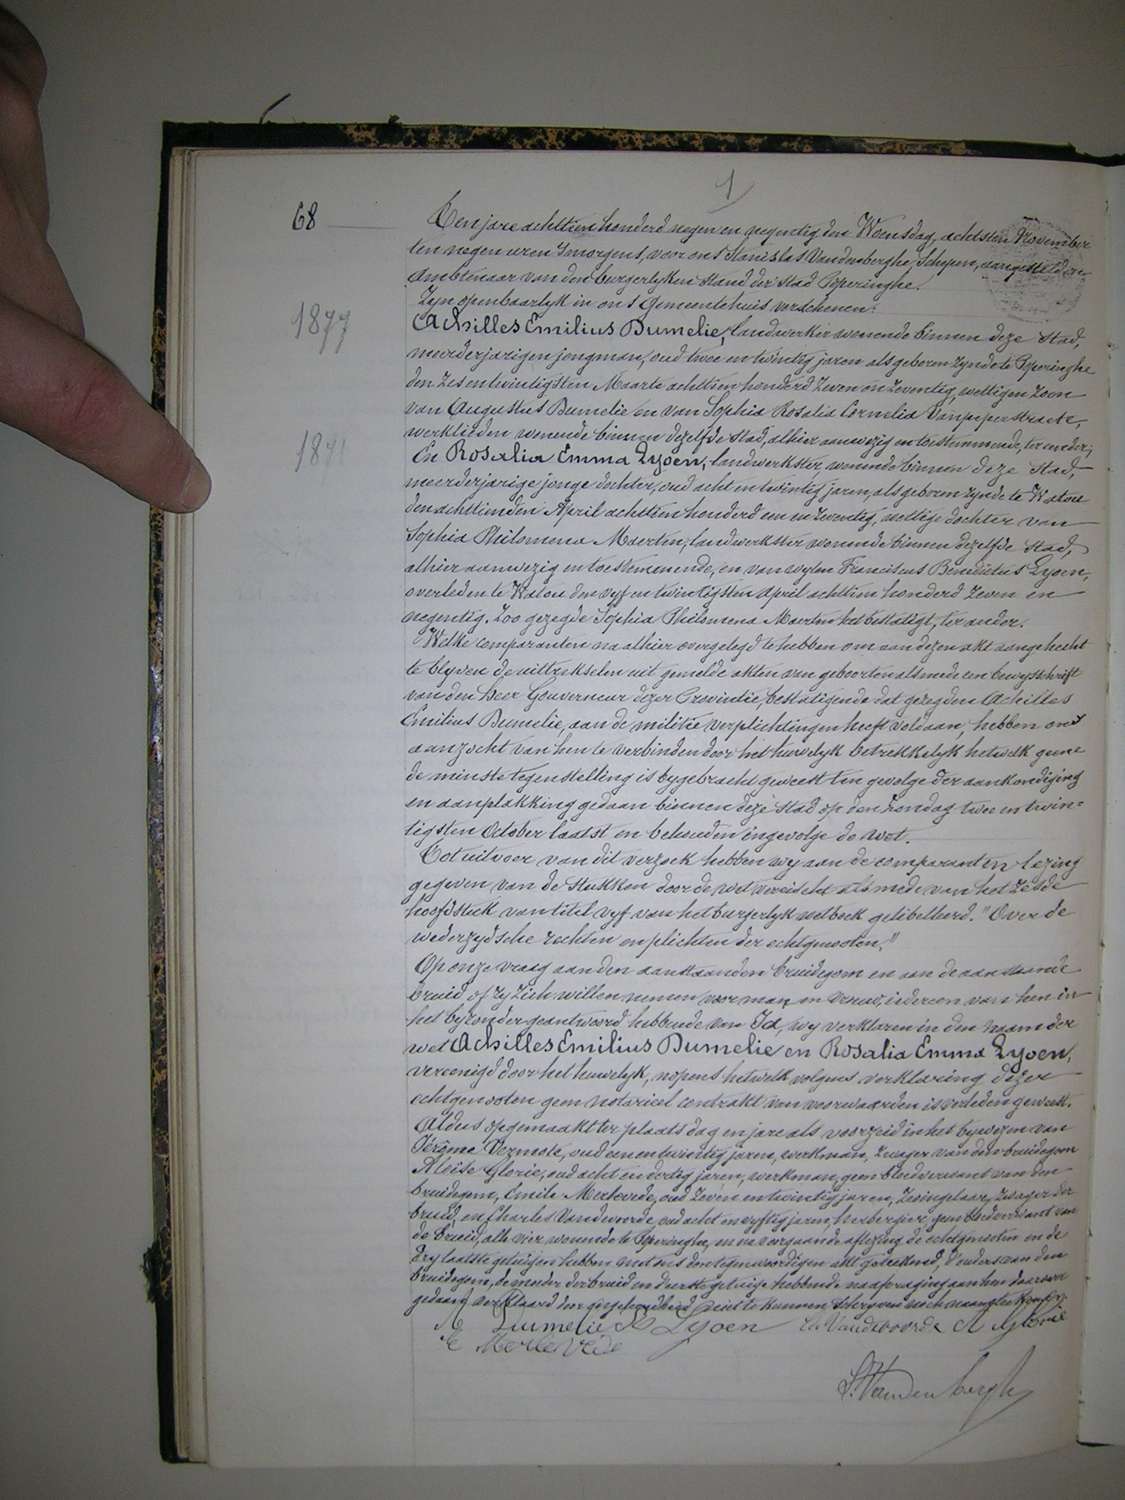 1
68
Ten jare achttien honderd negen en negentig den Woensdag, achtsten November
ten negen uren 's morgens, voor ons Stanislas Vandenberghe, Schepen, aangestelden
Ambtenaar van den burgerlyken stand der stad Poperinghe.
Zyn openbaarlyk in ons Gemeentehuis verschenen:
1877
Achilles Emilius Dumelie, landwerker wonende binnen deze stad,
meerderjarigen jongman, oud twee en twintig jaren als geboren zynde te Poperinghe
den zes en twintigsten Maarte achttien honderd zeven en zeventig, wettigen zoon
van Augustus Dumelie en van Sophia Rosalia Cornelia Vanpeperstraete,
werklieden wonende binnen dezelfde stad, alhier aanwezig en toestemmende, ter eender;
1871
En Rosalia Emma Lyoen, landwerkster, wonende binnen deze stad,
meerderjarige jonge dochter, oud acht en twintig jaren, als geboren zynde te Watou
den achttienden April achttien honderd een en zeventig, wettige dochter van
Sophia Philomena Maerten, landwerkster wonende binnen dezelfde stad,
alhier aanwezig en toestemmende, en van wylen Franciscus Benedictus Lyoen,
overleden te Watou den vyf en twintigsten April achttien honderd zeven en
negentig. Zoo gezegde Sophia Philomena Maerten het bestatigt, ter ander.
Welke comparanten na alhier overgelegd te hebben om aan dezen akt aangehecht
te blyven de uittrekselen uit gemelde akten van geboorten alsmede een bewysschrift
van den Heer Gouverneur dezer Provintie, bestatigende dat gezegden Achilles
Emilius Dumelie, aan de militie verplichtingen heeft voldaan, hebben ons
aanzocht van hen te verbinden door het huwelyk betrekkelyk hetwelk geene
de minste tegenstelling is bygebracht geweest ten gevolge der aankondiging
en aanplakking gedaan binnen deze stad op den zondag twee en twin=
tigsten October laatst en behouden ingevolge de wet.
Tot uitvoer van dit verzoek hebben wy aan de comparanten lezing
gegeven van de stukken door de wet vereischt alsmede van het zesde
hoofdstuk van titel vyf van het burgerlyk wetboek gelibelleerd. "Over de
wederzydsche rechten en plichten der echtgenooten."
Op onze vraag aan den aanstaanden bruidegom en aan de aanstaande
bruid of zy zich willen nemen voor man en vrouw, iedereen van hen in
het byzonder geantwoord hebbende van Ja, wy verklaren in den naam der
wet Achilles Emilius Dumelie en Rosalia Emma Lyoen,
vereenigd door het huwelyk, nopens hetwelk volgens verklaring dezer
echtgenooten geen notarieel contrakt van voorwaarden is verleden geweest.
Aldus opgemaakt ter plaats dag en jare als voorzeid in het bywezen van
Jérôme Vermote, oud een en twintig jaren, werkman, zwager van den bruidegom
Aloïse Glorie, oud acht en dertig jaren, werkman, geen bloedverwant van den
bruidegom, Emile Merlevede, oud zeven en twintig jaren, zwingelaar, zwager der
bruid, en Charles Vandevoorde, oud acht en vyftig jaren, herbergier, geen bloedverwant van
de bruid, alle vier wonende te Poperinghe, en na voorgaande aflezing de echtgenooten en de
dry laatste getuigen hebben met ons den tegenwoordigen akt geteekend, d'ouders van den
bruidegom, de moeder der bruid en d'eerste getuige hebbende na afvraging aan hen daarover
gedaan verklaard door ongeleerdheid niet te kunnen schryven noch naamteekenen.
A E Dumelie R Lyoen Ch Vandevoorde A Glorie
E Merlevede
S. Vandenberghe